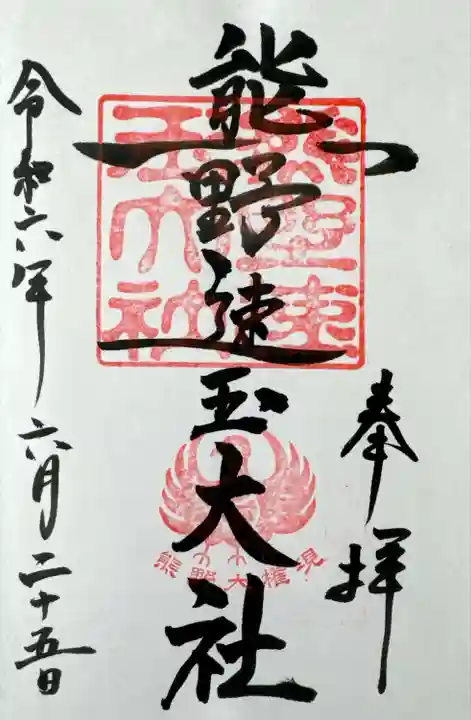 奉拝
熊野速玉大社
熊野速玉大社
熊野大権現
令和六年六月二十五日